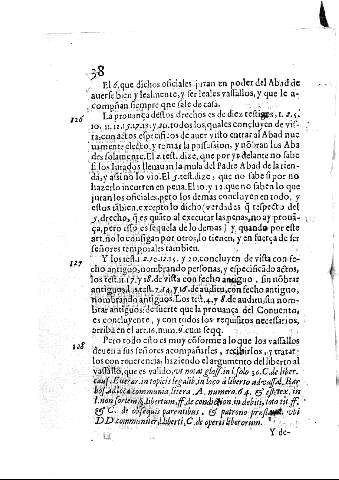 38
El 6. que dichos oficiales juran en poder del Abad de
auerse bien y lealmente, y ser leales vassallos, y que le a-
compañan siempre que sale de casa.
126 La prouança destos drechos es de diez testigos, t. 2. 5.
10. 11. 12. 15. 17. 19. y 20. todos los quales concluyen de vis-
ta: con actos especificos de auer visto entrar al Abad nue
uamente electo, y tomar la possission, y nõbran los Aba
des solamente. El 2. test. dize, que por ys delante no sabe
si los Iurados lleuauan la mula del Padre Abad de la rien-
da, y assi no lo vio. El 5. test. dize, que no sabe si por no
hazerlo incurren en pena. El 10. y 12. que no saben lo que
juran los oficiales, pero los demas concluyen en todo, y
estas sabien, excepto lo dicho (verdad es q̃ respecto del
5. drecho, q̃ es quãto al executar las penas, no ay prouã-
ça, pero esso es sequela de lo demas) y quando por este
art. no lo consigan por otros, lo tienen, y en fuerça de ser
señores temporales tambien.
127 Y los test. 2. 10. 12. 15. y 20. concluyen de vista con fe-
cho antiguo, nombrando personas, y especificãdo actos,
los test. 11. 17. y 18. de vista con fecho antiguo, sin nõbrar
antiguos. los test. 2. 14. y 16. de auditu, con fecho antiguo,
nombrando antiguos. Los test. 4. y 8. de auditu, sin nom-
brar antiguos: de suerte que la prouança del Conuento,
es concluyente, y con todos los requisitos necessarios,
escriba en el art. 16. num. 9. cum seqq.
128 Pero todo esto es muy cõforme a lo que los vassallos
deuen a sus señores acompañarles, recibirlos, y tratar-
los con reuerencia: haziendo el argumento del liberto al
vassallo, que es valido, vt notat gloss. in l. solo 36. C. de liber.
caus. Euerar. in topicis legalib. in loco a liberto ad vassal. Bar
bos. ad loca communia litera. A. numer. 64. & est tex. in
l. non sortem §. libertum, ff. de condition. in debiti, toto tit. ff.
& C. de obsequis parentibus. & patrono præstand. vbi
DD. communiter, liberti, C. de operis libertorum.
Y de-